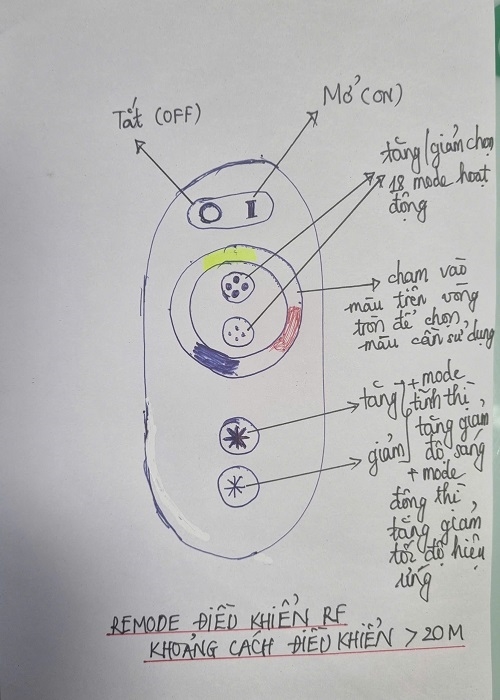 Tắt (OFF)
Mở (ON)
O I
tăng/giảm chọn
18 mode hoạt
động
chạm vào
màu trên vòng
tròn để chọn
màu cần sử dụng
tăng
giảm
+ mode
tĩnh thì
tăng giảm
độ sáng
+ mode
động thì
tăng giảm
tốc độ hiệu
ứng
REMODE ĐIỀU KHIỂN RF
KHOẢNG CÁCH ĐIỀU KHIỂN > 20M